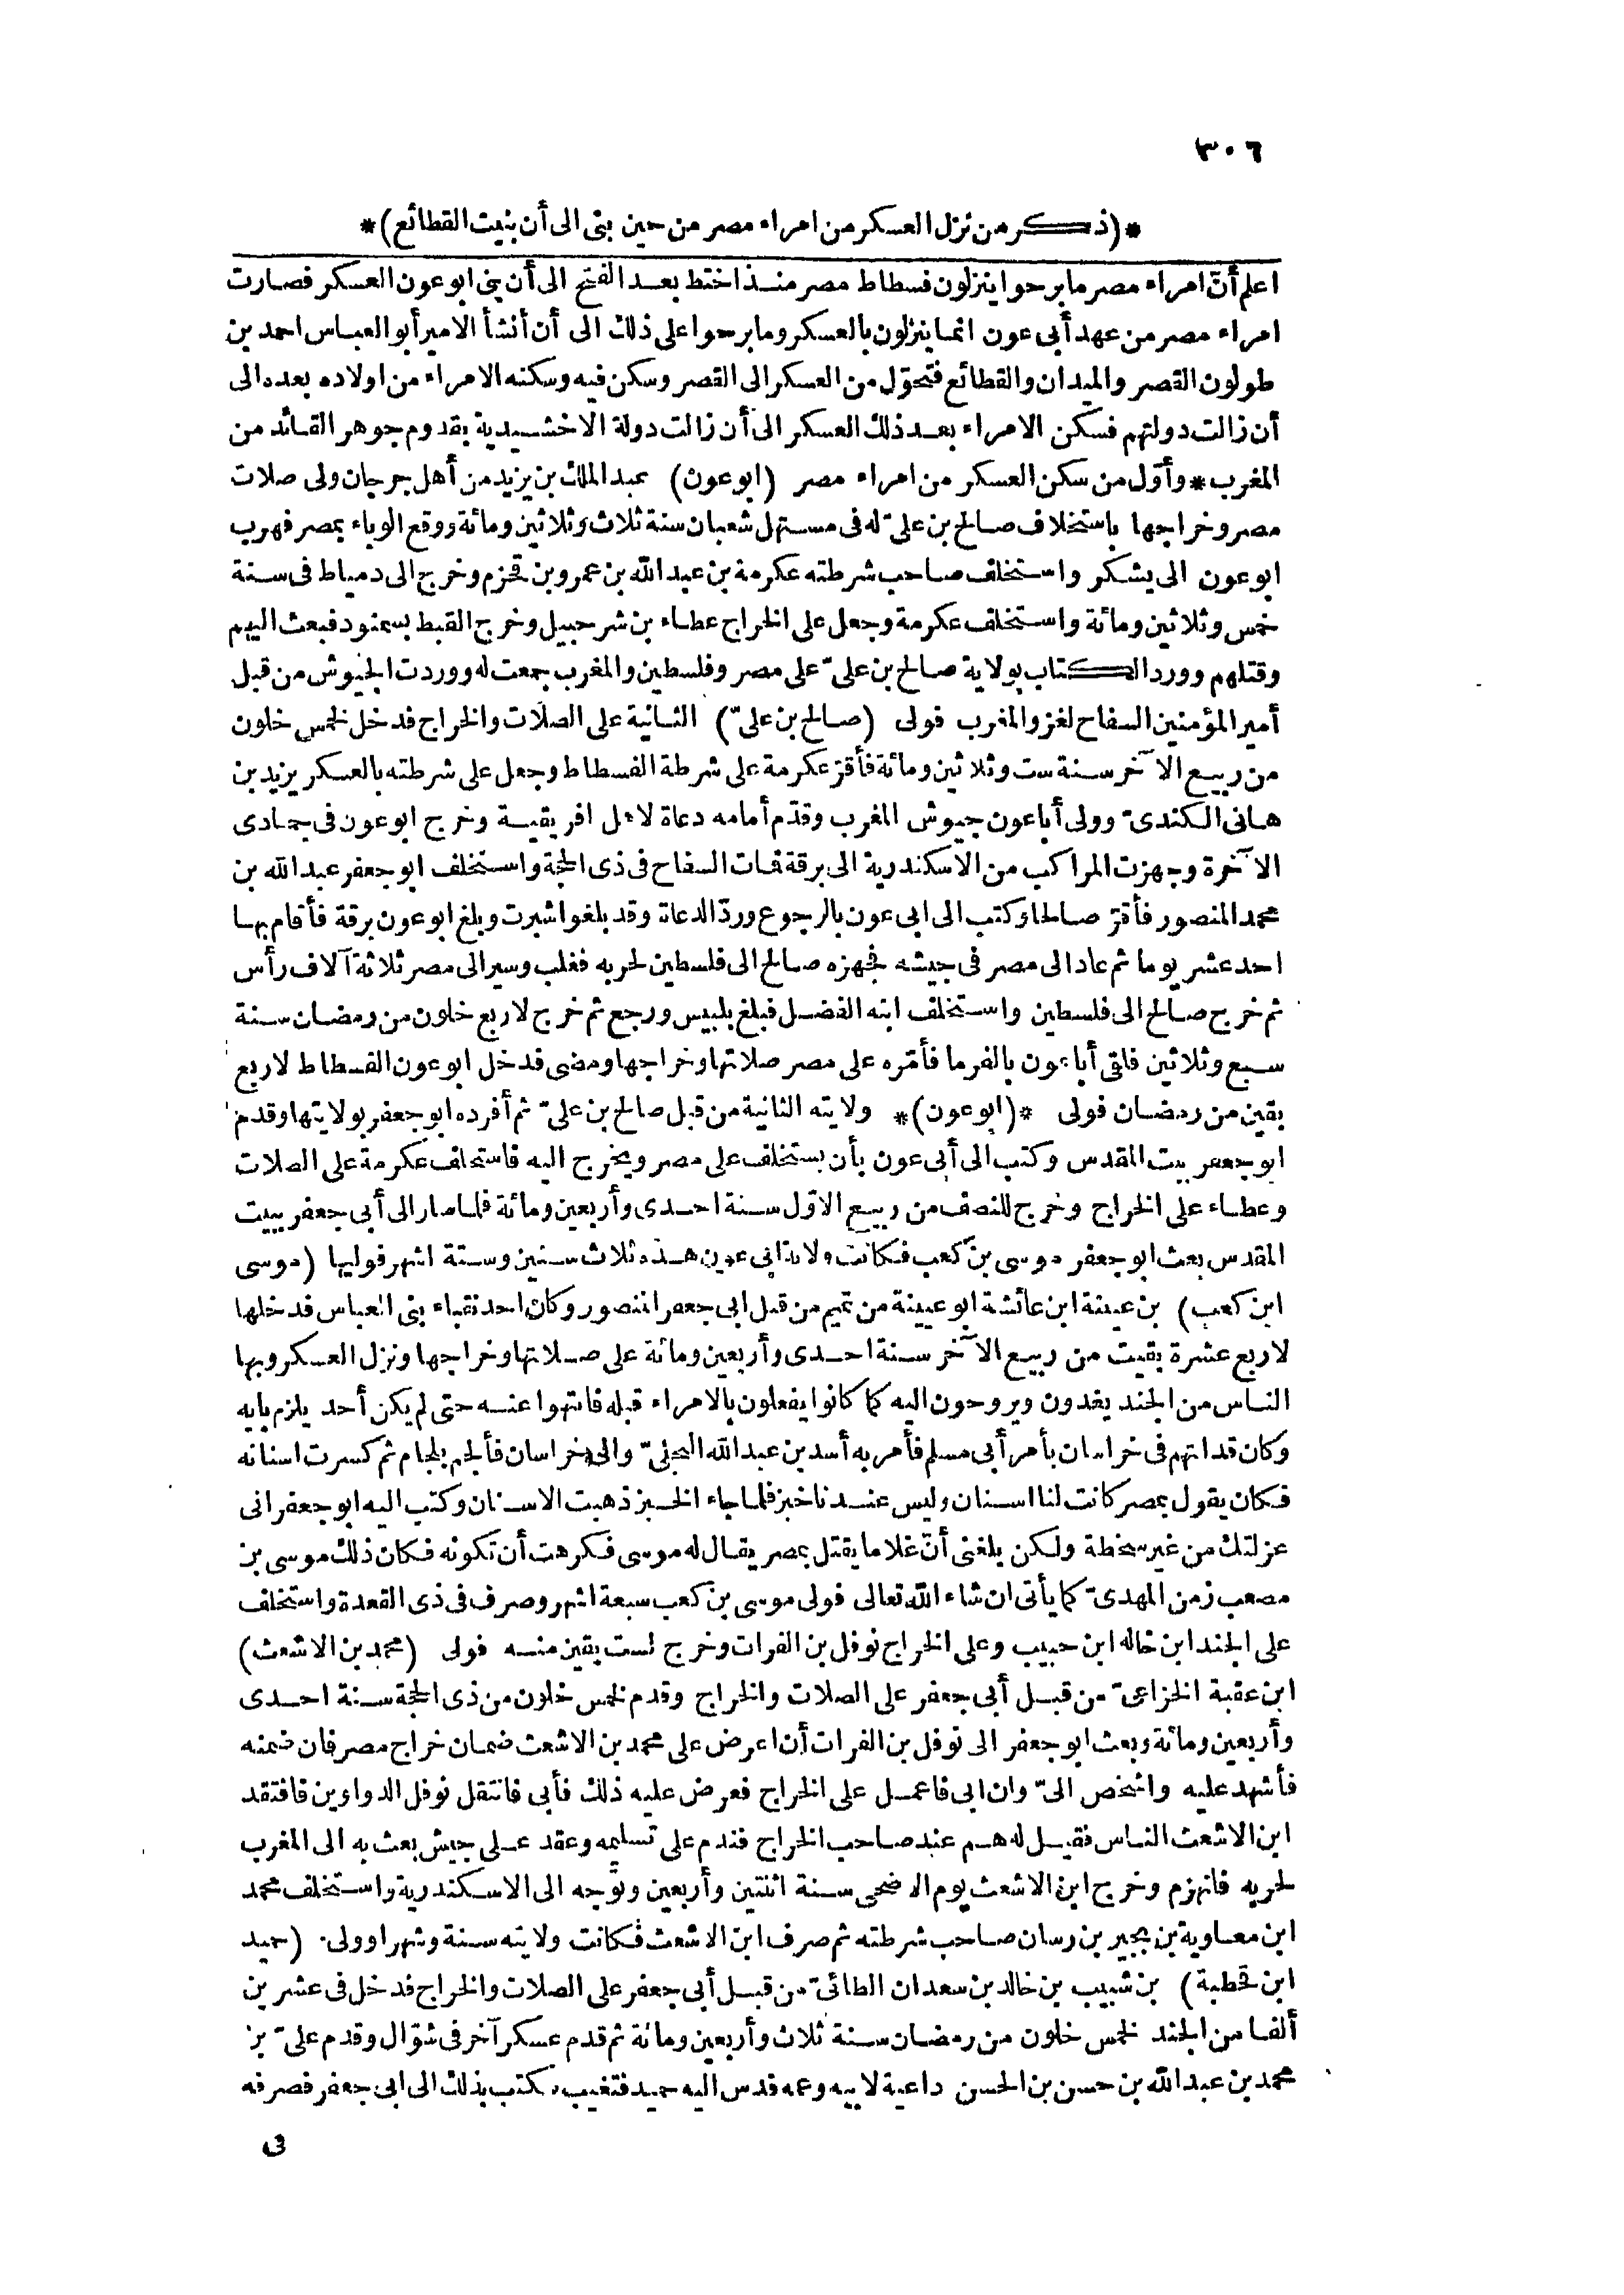 ٣٠٦
*(ذكر من نزل العسكر من امراء مصر من حين بنى الى أن بنيت القطائع)*
اعلم أنّ امراء مصر ما برحوا ينزلون فسطاط مصر منذ اختط بعد الفتح الى أن بنى ابو عون العسكر فصارت
امراء مصر من عهد أبى عون انما ينزلون بالعسكر وما برحوا على ذلك الى أن أنشأ الامير أبو العباس احمد بن
طولون القصر والميدان والقطائع فتحوّل من العسكر الى القصر وسكن فيه وسكنه الامراء من اولاده بعده الى
أن زالت دولتهم فسكن الامراء بعد ذلك العسكر الى أن زالت دولة الاخشيدية بقدوم جوهر القائد من
المغرب * وأوّل من سكن العسكر من امراء مصر (ابو عون) عبد الملك بن يزيد من أهل جرجان ولى صلات
مصر وخراجها باستخلاف صالح بن علىّ له فى مستهل شعبان سنة ثلاث وثلاثين ومائة ووقع الوباء بمصر فهرب
ابو عون الى يشكر واستخلف صاحب شرطته عكرمة بن عبد الله بن عمرو بن قحزم وخرج الى دمياط فى سنة
خمس وثلاثين ومائة واستخلف عكرمة وجعل على الخراج عطاء بن شرحبيل وخرج القبط بسمنود فبعث اليهم
وقتلهم وورد الكتاب بولاية صالح بن علىّ على مصر وفلسطين والمغرب جمعت له ووردت الجيوش من قبل
أمير المؤمنين السفاح لغزو المغرب فولى (صالح بن علىّ) الثانية على الصلات والخراج فدخل لخمس خلون
من ربيع الآخر سنة ست وثلاثين ومائة فأقرّ عكرمة على شرطة الفسطاط وجعل على شرطته بالعسكر يزيد بن
هانى الكندىّ وولى أبا عون جيوش المغرب وقدّم أمامه دعاة لاهل افريقية وخرج ابو عون فى جمادى
الآخرة وجهزت المراكب من الاسكندرية الى برقة فمات السفاح فى ذى الحجة واستخلف ابو جعفر عبد الله بن
محمد المنصور فأقرّ صالحا وكتب الى ابى عون بالرجوع وردّ الدعاة وقد بلغوا شبرت وبلغ ابو عون برقة فأقام بها
احد عشر يوما ثم عاد الى مصر فى جيشه فجهزه صالح الى فلسطين لحربه فغلب وسير الى مصر ثلاثة آلاف رأس
ثم خرج صالح الى فلسطين واستخلف ابنه الفضل فبلغ بلبيس ورجع ثم خرج لاربع خلون من رمضان سنة
سبع وثلاثين فلقى أبا عون بالفرما فأمّره على مصر صلاتها وخراجها ومضى فدخل ابو عون الفسطاط لاربع
بقين من رمضان فولى *(ابو عون)* ولايته الثانية من قبل صالح بن علىّ ثم أفرده ابو جعفر بولايتها وقدم
ابو جعفر بيت المقدس وكتب الى أبى عون بأن يستخلف على مصر ويخرج اليه فاستخلف عكرمة على الصلات
وعطاء على الخراج وخرج للنصف من ربيع الاوّل سنة احدى وأربعين ومائة فلما صار الى أبى جعفر ببيت
المقدس بعث ابو جعفر موسى بن كعب فكانت ولاية ابى عون هذه ثلاث سنين وستة اشهر فوليها (موسى
ابن كعب) بن عيينة ابن عائشة ابو عيينة من تميم من قبل ابى جعفر المنصور وكان احد نقباء بنى العباس فدخلها
لاربع عشرة بقيت من ربيع الآخر سنة احدى وأربعين ومائة على صلاتها وخراجها ونزل العسكر وبها
الناس من الجند يغدون ويروحون اليه كما كانوا يفعلون بالامراء قبله فانتهوا عنه حتى لم يكن أحد يلزم بابه
وكان قد اتهم فى خراسان بأمر أبى مسلم فأمر به أسد بن عبد الله البجلىّ والى خراسان فألجم بلجام ثم كسرت اسنانه
فكان يقول بمصر كانت لنا اسنان وليس عندنا خبز فلما جاء الخبز ذهبت الاسنان وكتب اليه ابو جعفر انى
عزلتك من غير سخطة ولكن بلغنى أنّ غلاما يقتل بمصر يقال له موسى فكرهت أن تكونه فكان ذلك موسى بن
مصعب زمن المهدىّ كما يأتى ان شاء الله تعالى فولى موسى بن كعب سبعة اشهر وصرف فى ذى القعدة واستخلف
على الجند ابن خاله ابن حبيب وعلى الخراج نوفل بن الفرات وخرج لست بقين منه فولى (محمد بن الاشعث)
ابن عقبة الخزاعىّ من قبل أبى جعفر على الصلات والخراج وقدم لخمس خلون من ذى الحجة سنة احدى
وأربعين ومائة وبعث ابو جعفر الى نوفل بن الفرات أن اعرض على محمد بن الاشعث ضمان خراج مصر فان ضمنه
فأشهد عليه واشخص الىّ وان ابى فاعمل على الخراج فعرض عليه ذلك فأبى فانتقل نوفل الدواوين فافتقد
ابن الاشعث الناس فقيل له هم عند صاحب الخراج فندم على تسليمه وعقد على جيش بعث به الى المغرب
لحربه فانهزم وخرج ابن الاشعث يوم الاضحى سنة اثنتين وأربعين وتوجّه الى الاسكندرية واستخلف محمد
ابن معاوية بن بجير بن رسان صاحب شرطته ثم صرف ابن الاشعث فكانت ولايته سنة وشهرا وولى (حميد
ابن قحطبة) بن شبيب بن خالد بن سعدان الطائىّ من قبل أبى جعفر على الصلات والخراج فدخل فى عشرين
ألفا من الجند لخمس خلون من رمضان سنة ثلاث وأربعين ومائة ثم قدم عسكر آخر فى شوّال وقدم علىّ بن
محمد بن عبد الله بن حسن بن الحسن داعية لابيه وعمه فدس اليه حميد فتغيب فكتب بذلك الى ابى جعفر فصرفه
فى